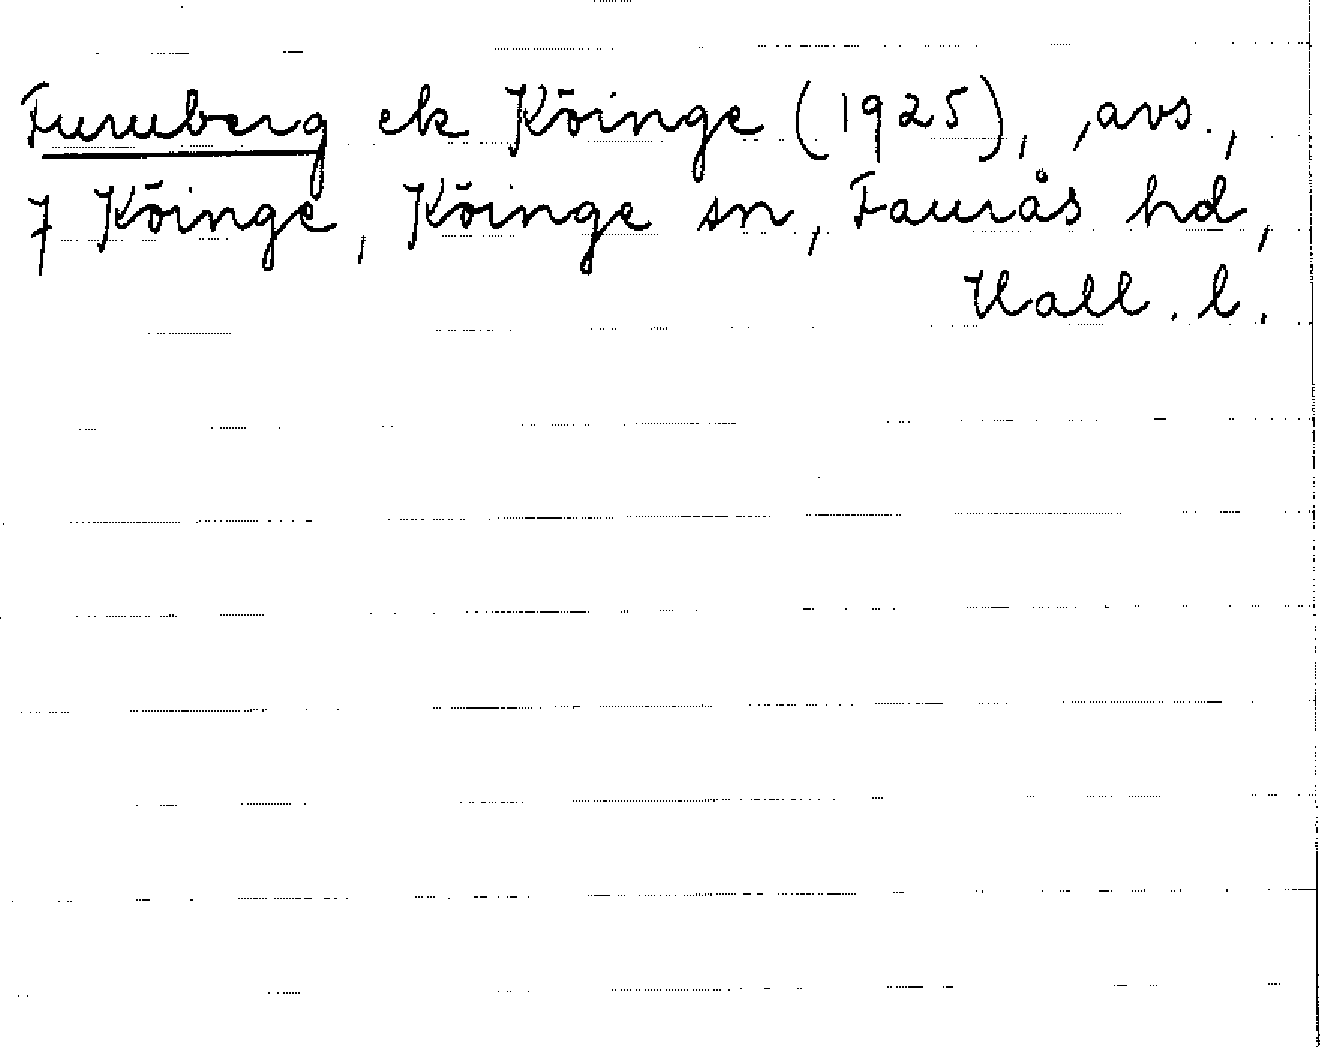 Furuberg ek Köinge (1925), avs.,
7 Köinge, Köinge sn, Faurås hd,
Hall. l.